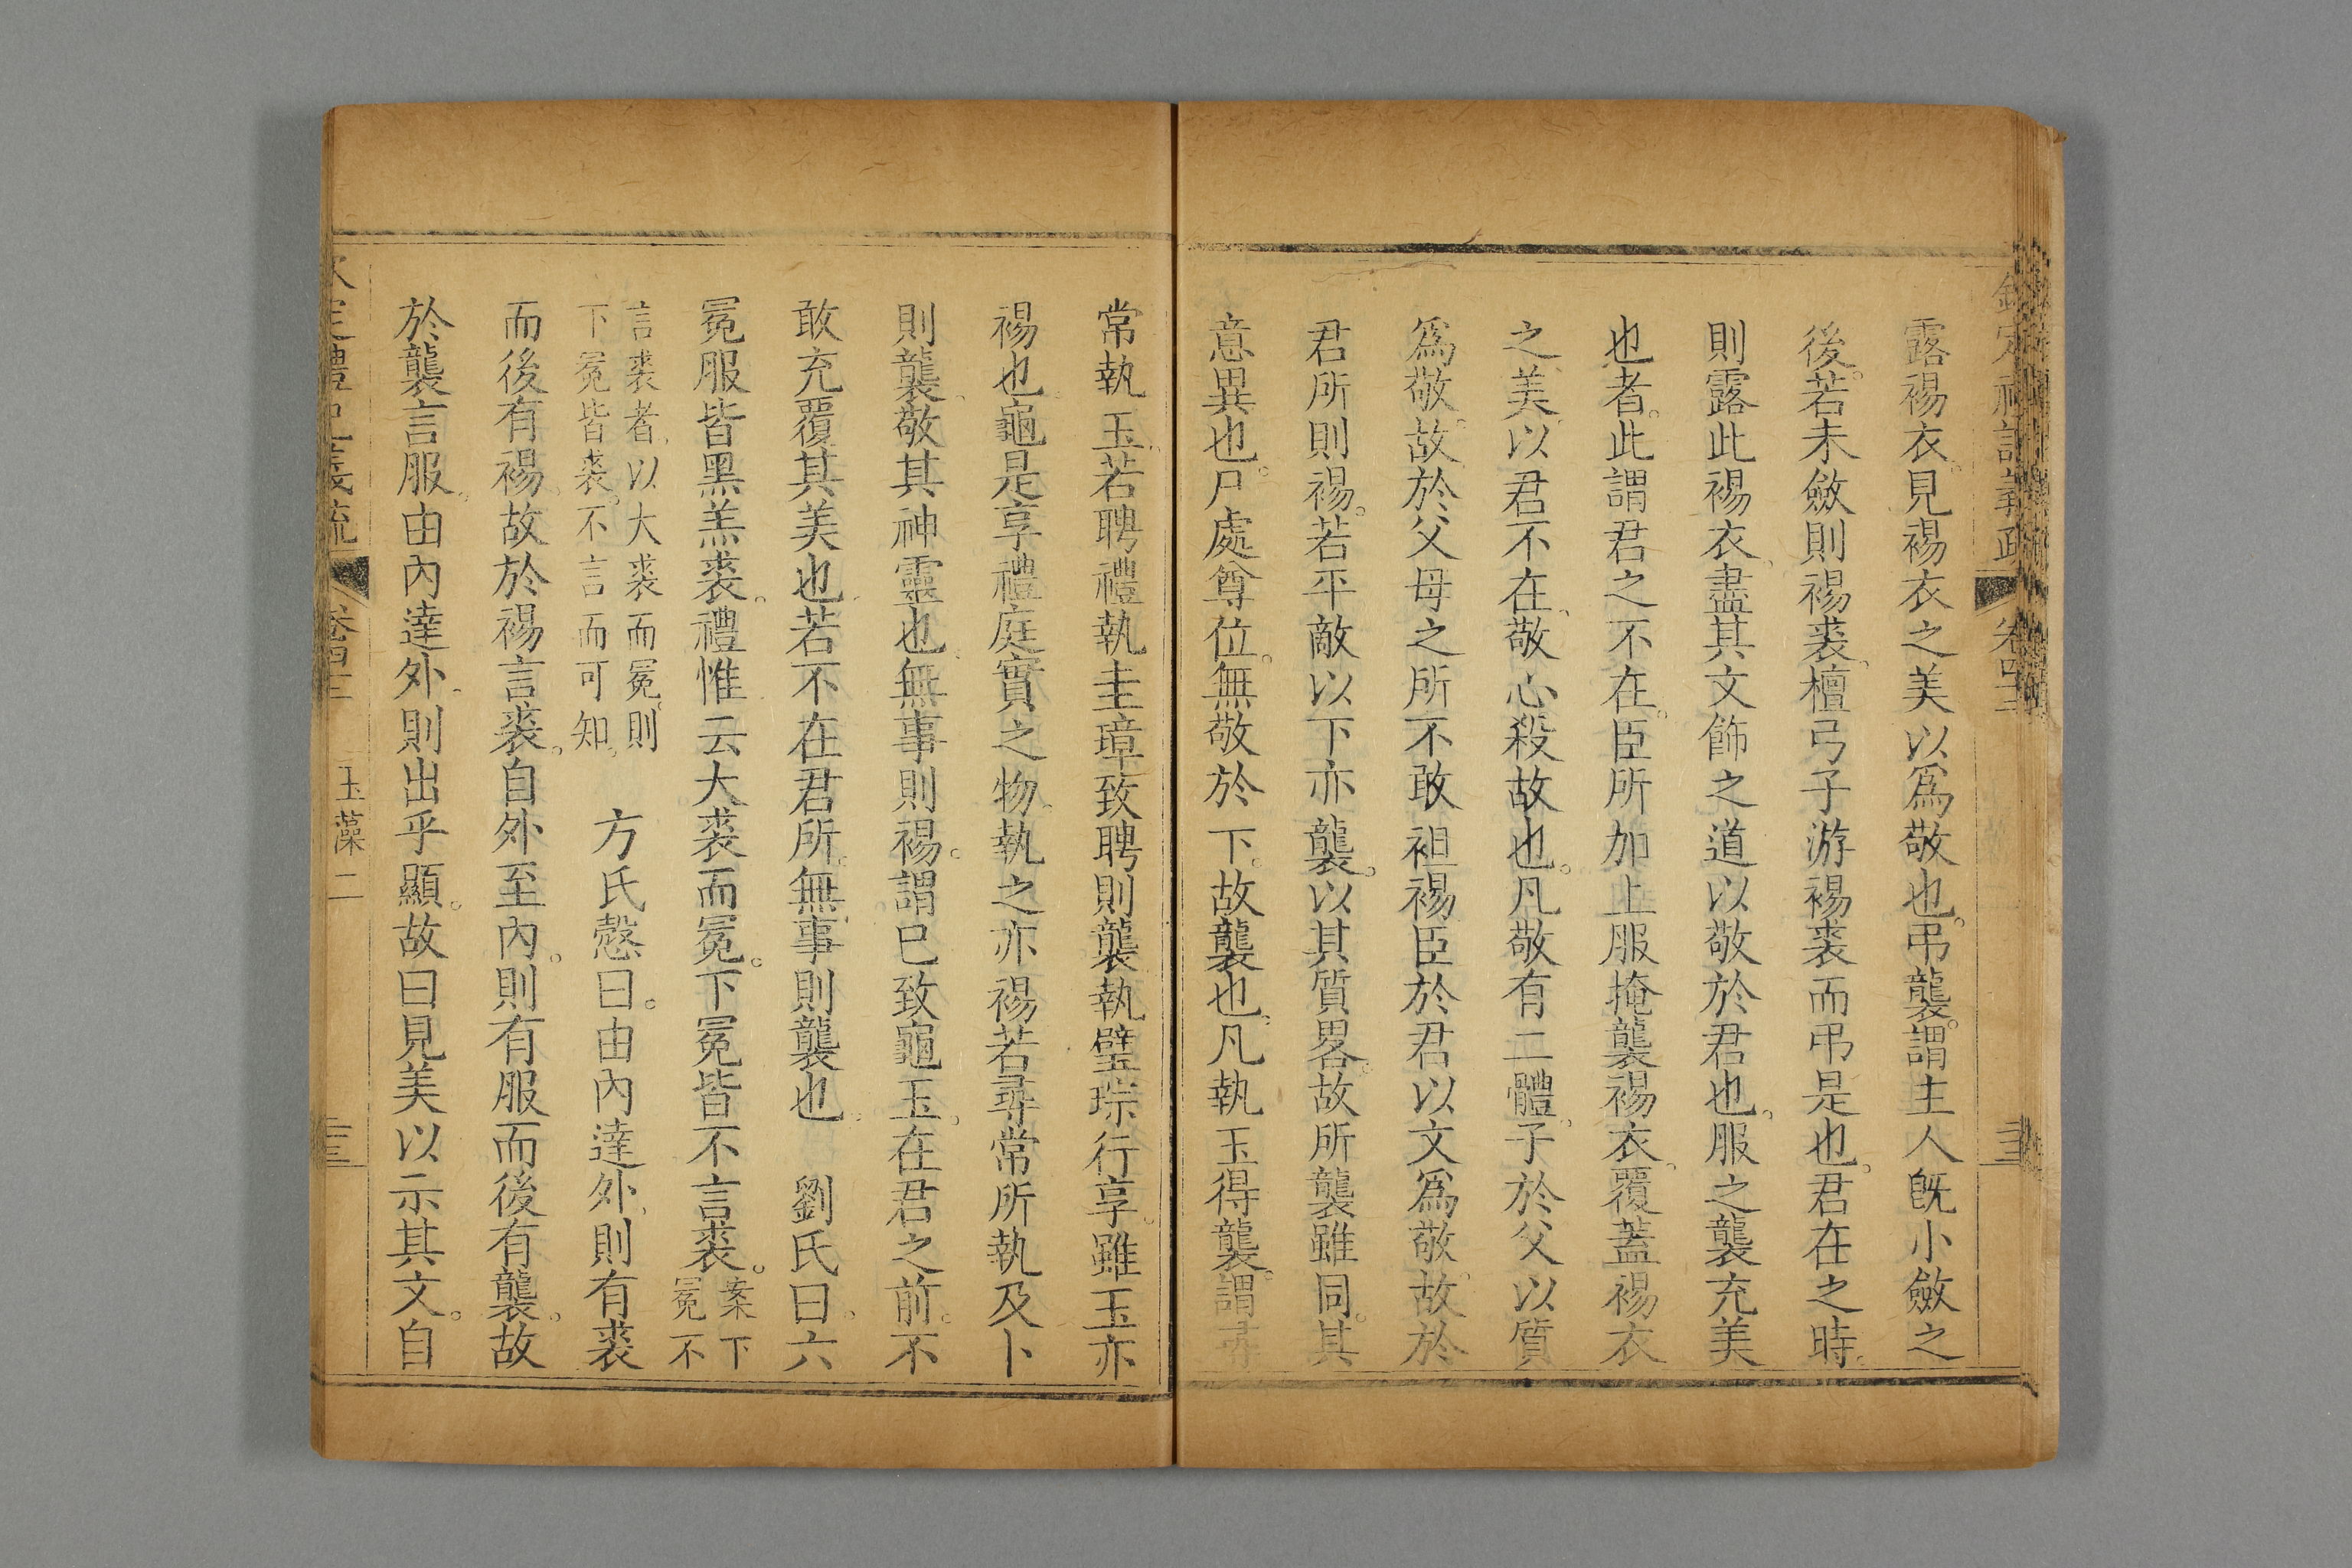 欽定禮記義疏 卷四十三
露裼衣見裼衣之美以爲敬也。弔襲。謂主人旣小斂之
後。若未斂則裼裘。檀弓子游裼裘而弔是也。君在之時。
則露此裼衣。盡其文飾之道以敬於君也。服之襲充美
也者。此謂君之不在。臣所加上服掩襲裼衣。覆蓋裼衣
之美。以君不在。敬心殺故也。凡敬有二體。子於父以質
爲敬。故於父母之所不敢袒裼。臣於君以文爲敬。故於
君所則裼。若平敵以下亦襲。以其質畧。故所襲雖同。其
意異也。尸處尊位。無敬於下。故襲也。凡執玉得襲。謂尋
常執玉。若聘禮執圭璋致聘則襲。執璧琮行享。雖玉亦
裼也。龜是享禮庭實之物。執之亦裼。若尋常所執及卜
則襲。敬其神靈也。無事則裼。謂已致龜玉。在君之前。不
敢充覆其美也。若不在君所。無事則襲也 劉氏曰。六
冕服皆黑羔裘。禮惟云大裘而冕。下冕皆不言裘。案下冕不
言裘者。以大裘而冕。則下冕皆裘。不言而可知。 方氏慤曰。由內達外。則有裘
而後有裼。故於裼言裘。自外至內。則有服而後有襲。故
於襲言服。由內達外。則出乎顯。故曰見美以示其文。自
定禮記義疏 卷四十三 玉藻二